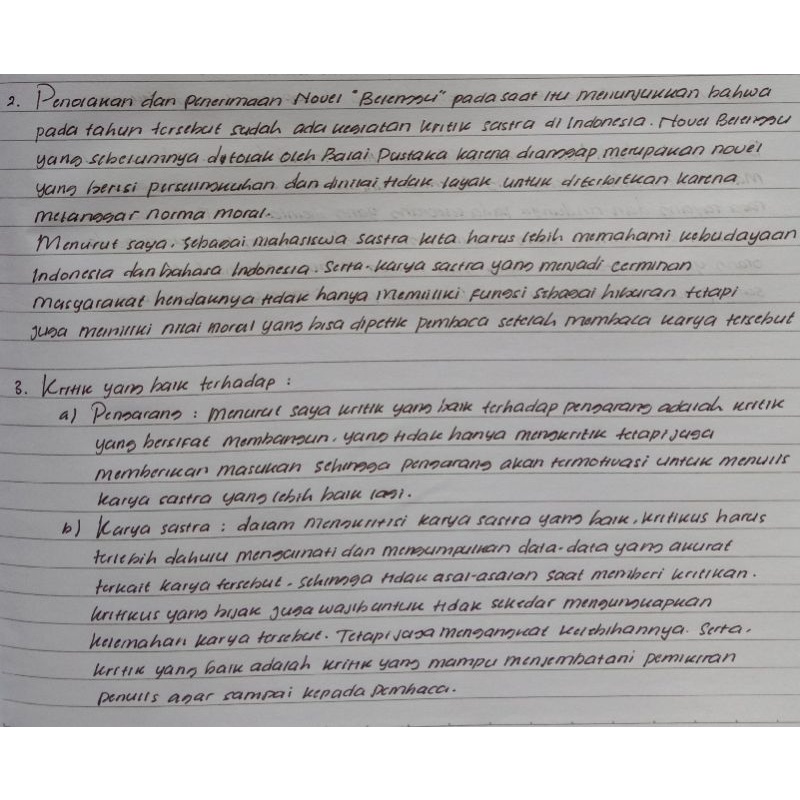 2. Penolakan dan penerimaan Novel "Belenggu" pada saat itu menunjukkan bahwa
pada tahun tersebut sudah ada kegiatan kritik sastra di Indonesia. Novel Belenggu
yang sebelumnya ditolak oleh Balai Pustaka karena dianggap merupakan novel
yang berisi perselingkuhan dan dinilai tidak layak untuk diterbitkan karena
melanggar norma moral.
Menurut saya, sebagai mahasiswa sastra kita harus lebih memahami kebudayaan
Indonesia dan bahasa Indonesia. Serta, karya sastra yang menjadi cerminan
masyarakat hendaknya tidak hanya memiliki fungsi sebagai hiburan tetapi
juga memiliki nilai moral yang bisa dipetik pembaca setelah membaca karya tersebut
3. Kritik yang baik terhadap :
a) Pengarang : menurut saya kritik yang baik terhadap pengarang adalah kritik
yang bersifat membangun, yang tidak hanya mengkritik tetapi juga
memberikan masukan sehingga pengarang akan termotivasi untuk menulis
karya sastra yang lebih baik lagi.
b) Karya sastra : dalam mengkritisi karya sastra yang baik, kritikus harus
terlebih dahulu mengamati dan mengumpulkan data-data yang akurat
terkait karya tersebut, sehingga tidak asal-asalan saat memberi kritikan.
kritikus yang bijak juga wajib untuk tidak sekedar mengungkapkan
kelemahan karya tersebut. Tetapi juga mengangkat kelebihannya. Serta,
kritik yang baik adalah kritik yang mampu menjembatani pemikiran
penulis agar sampai kepada pembaca.